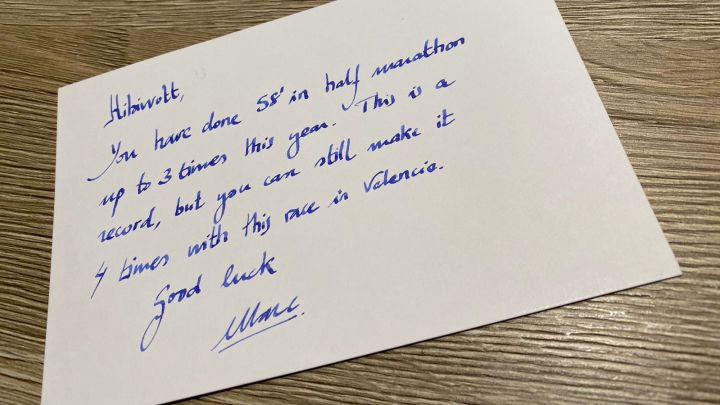 Kibiwott,
You have done 58' in half marathon
up to 3 times this year. This is a
record, but you can still make it
4 times with this race in Valencia.
Good luck
Marc